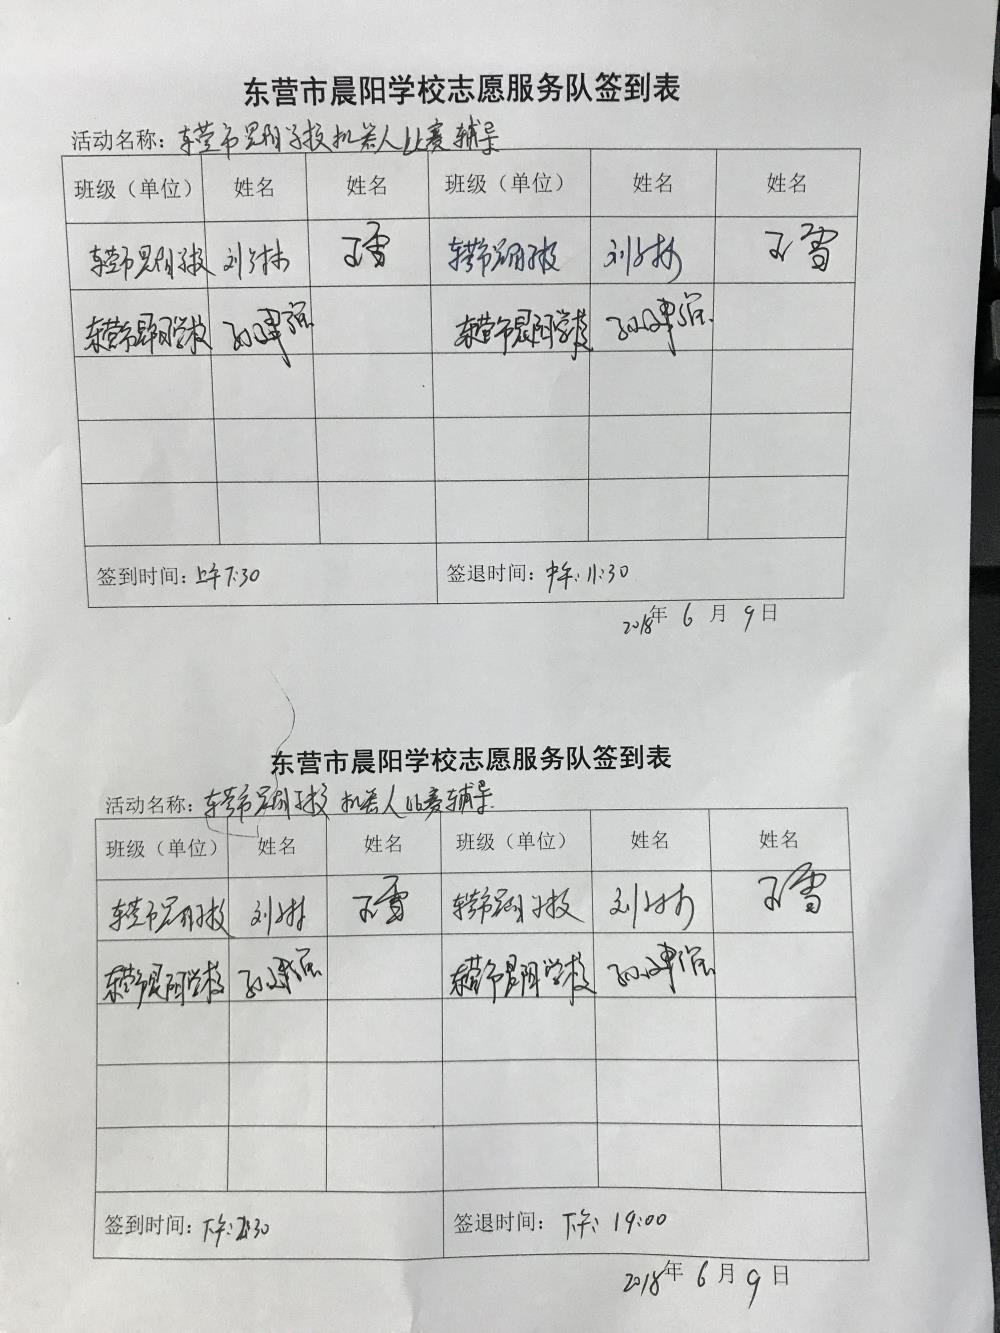 东营市晨阳学校志愿服务队签到表
活动名称：东营市晨阳学校机器人比赛辅导
班级（单位） 姓名 姓名 班级（单位） 姓名 姓名
东营市晨阳学校 刘 王雪 东营市晨阳学校 刘 王雪
东营市晨阳学校 孙建强 东营市晨阳学校 孙建强
签到时间：上午7:30 签退时间：中午：11:30
2018年6月9日
东营市晨阳学校志愿服务队签到表
活动名称：东营市晨阳学校机器人比赛辅导
班级（单位） 姓名 姓名 班级（单位） 姓名 姓名
东营市晨阳学校 刘 王雪 东营市晨阳学校 刘 王雪
东营市晨阳学校 孙建强 东营市晨阳学校 孙建强
签到时间：下午：:30 签退时间：下午：19:00
2018年6月9日